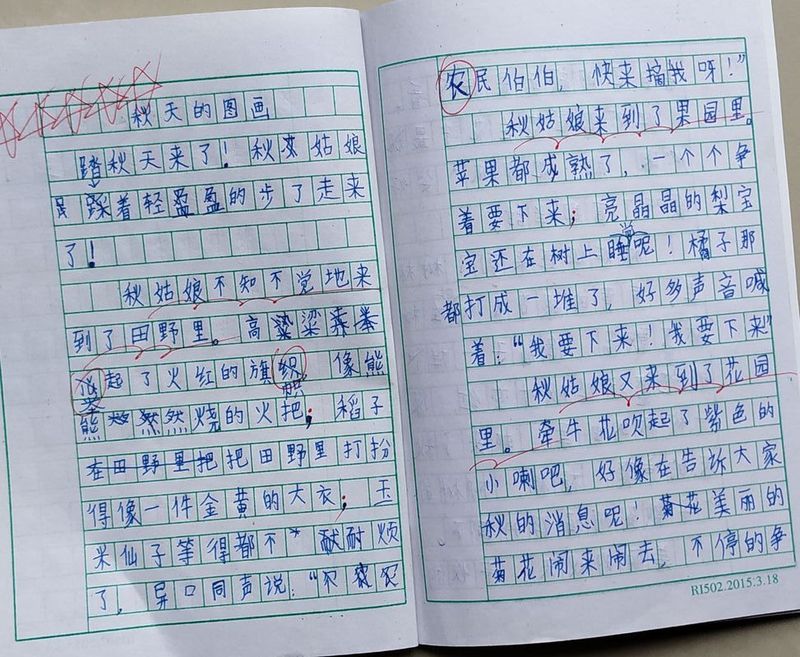 秋天的图画
踏秋天来了！秋天姑娘
踩着轻盈盈的步了走来
了！
秋姑娘不知不觉地来
到了田野里。高粱
举起了火红的旗织，像熊
熊燃烧的火把；稻子
在田野里把把田野里打扮
得像一件金黄的大衣；玉
米仙子等得都不耐烦
了，异口同声说：“农
农民伯伯，快来摘我呀！”
秋姑娘来到了果园里。
苹果都成熟了，一个个争
着要下来；亮晶晶的梨宝
宝还在树上睡呢！橘子那
都打成一堆了，好多声音喊
着：“我要下来！我要下来”
秋姑娘又来到了花园
里。牵牛花吹起了紫色的
小喇吧，好像在告诉大家
秋的消息呢！菊花美丽的
菊花闹来闹去，不停的争
RI502.2015.3.18